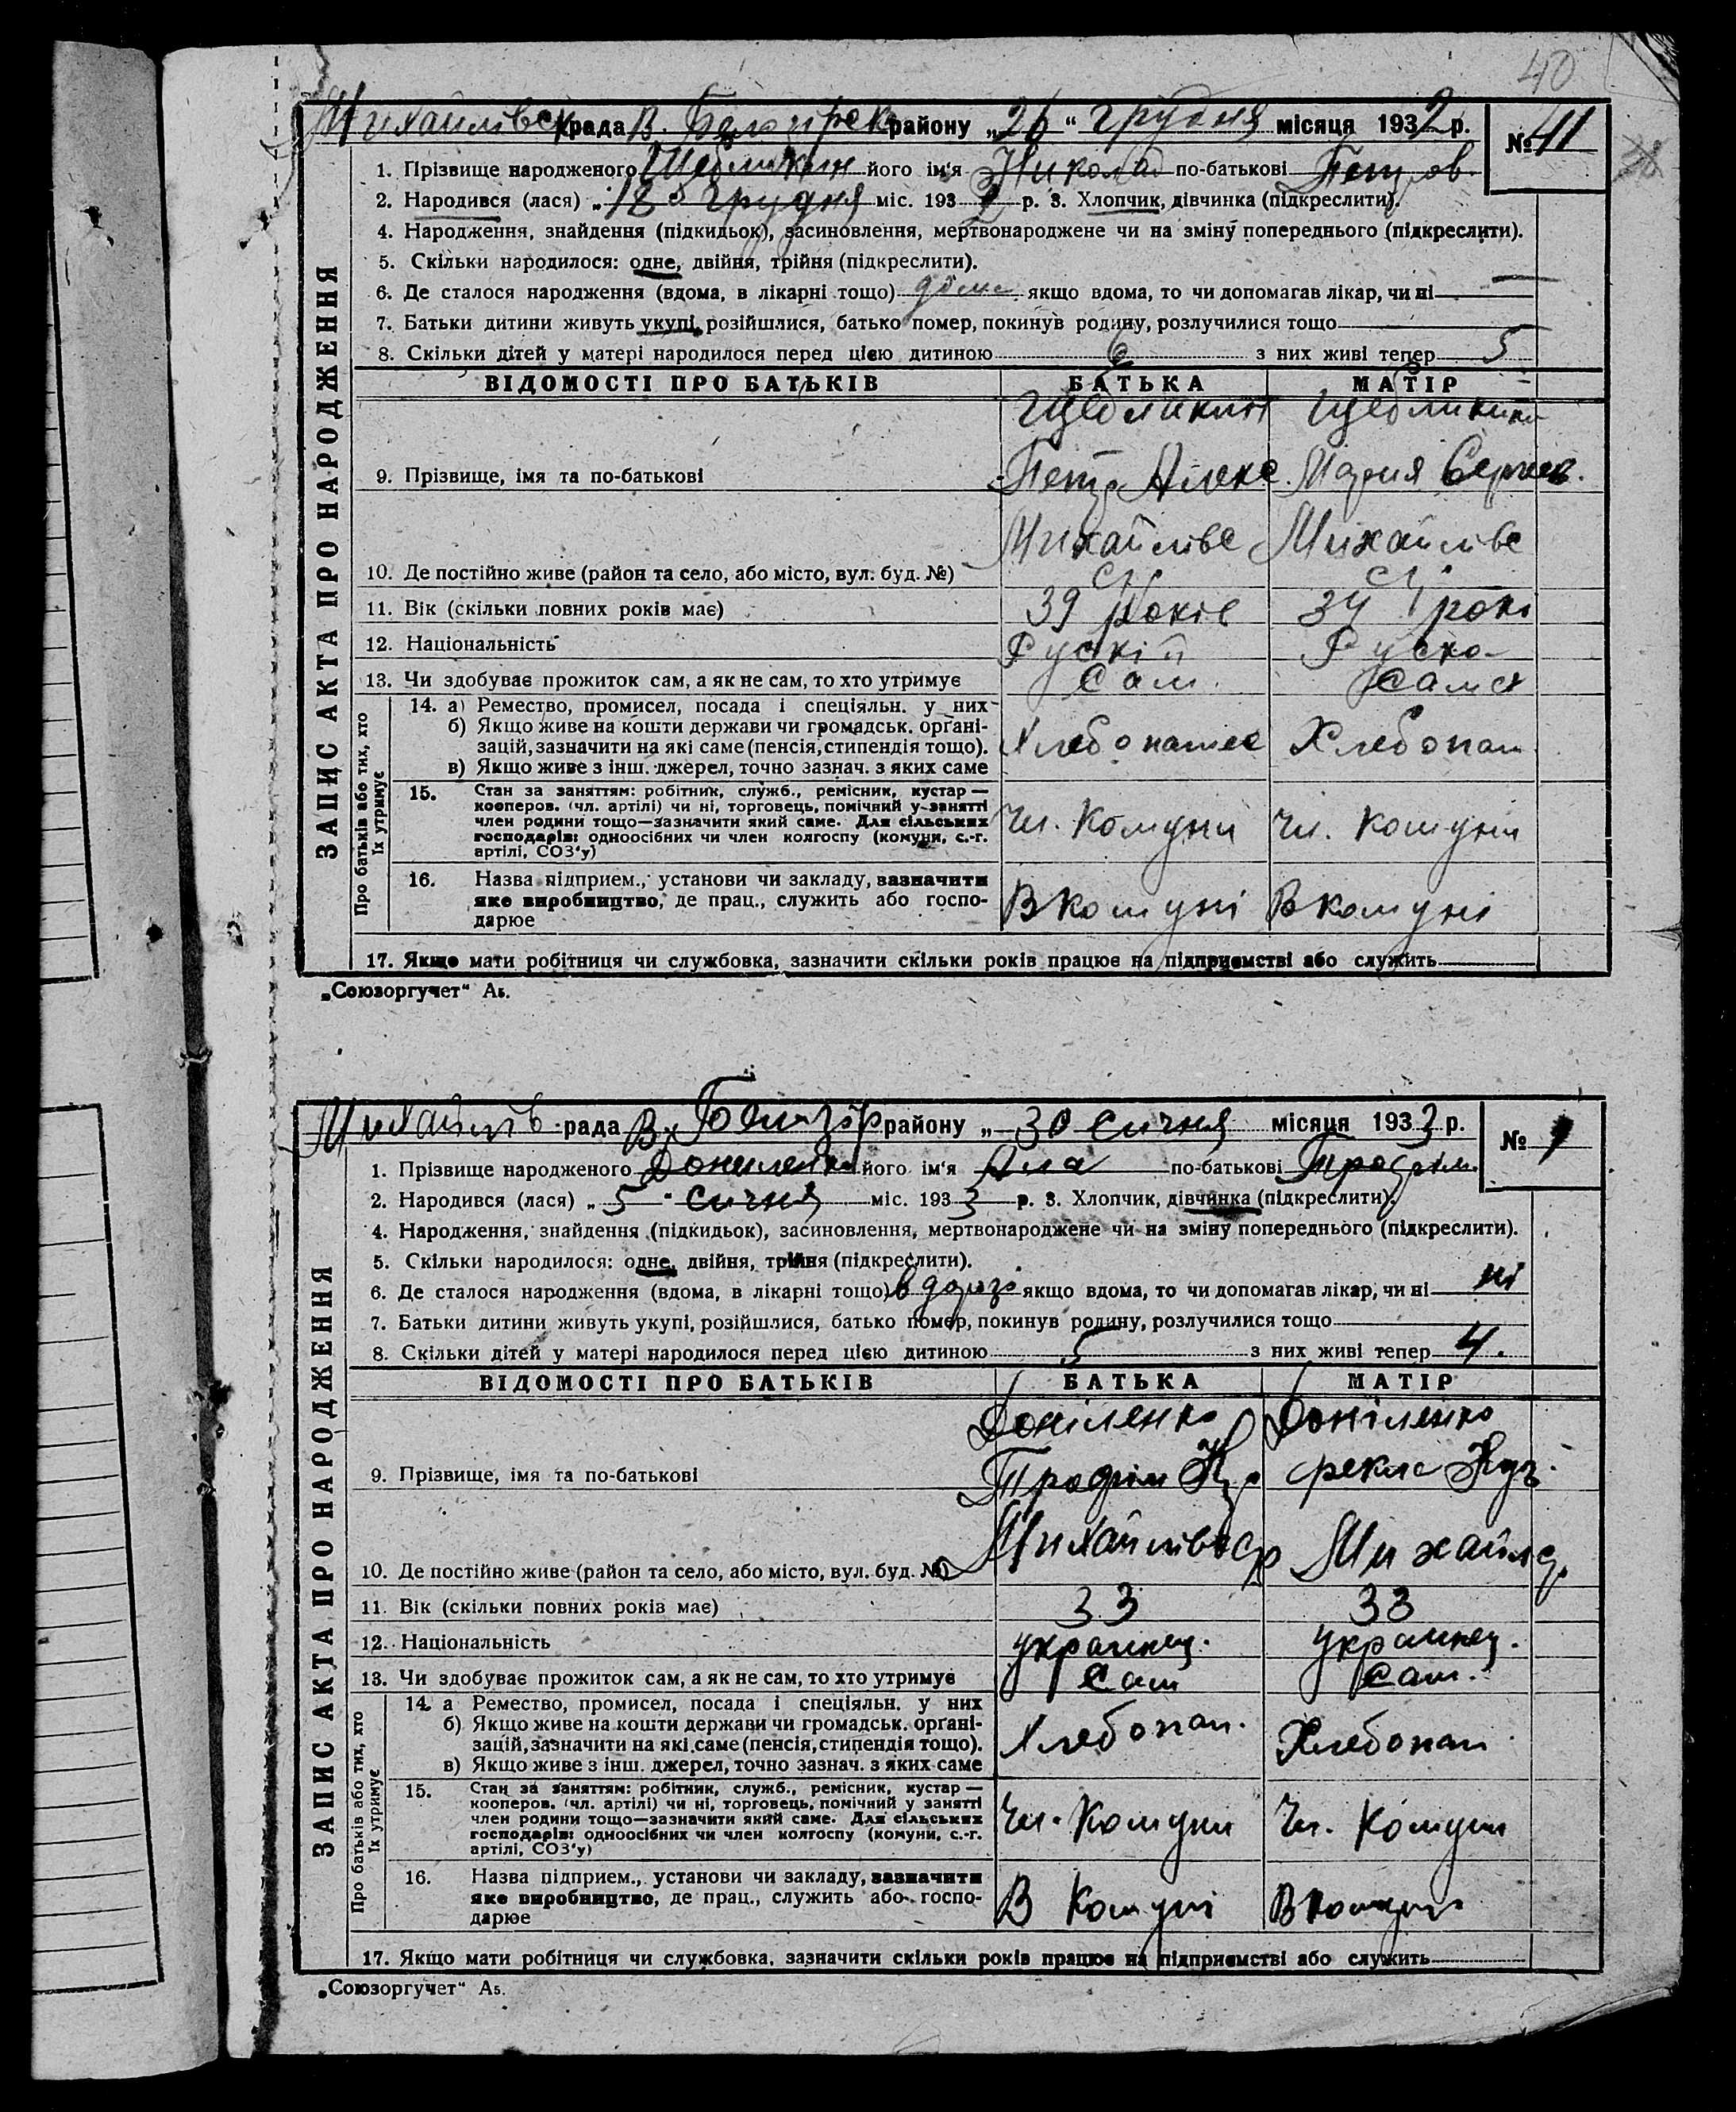 40
Михайлівск рада В. Белозірск району „26“ грудня місяця 1932 р. № 41
1. Прізвище народженого Щебликин його ім'я Николай по-батькові Петров.
2. Народився (лася) „18“ грудня міс. 1932 р. 3. Хлопчик, дівчинка (підкреслити).
4. Народження, знайдення (підкидьок), засиновлення, мертвонароджене чи на зміну попереднього (підкреслити).
5. Скільки народилося: одне, двійня, трійня (підкреслити).
6. Де сталося народження (вдома, в лікарні тощо) дома якщо вдома, то чи допомагав лікар, чи ні —
7. Батьки дитини живуть укупі, розійшлися, батько помер, покинув родину, розлучилися тощо
8. Скільки дітей у матері народилося перед цією дитиною 6 з них живі тепер 5
ВІДОМОСТІ ПРО БАТЬКІВ БАТЬКА МАТІР
Щебликин Щебликина
9. Прізвище, імя та по-батькові Петр Алекс. Мария Сергеев.
Михайлівс Михайлівс
10. Де постійно живе (район та село, або місто, вул. буд. №) с/р с/р
11. Вік (скільки повних років має) 39 років 34 роки
12. Національність Рускій Руска
13. Чи здобуває прожиток сам, а як не сам, то хто утримує Сам. Сама
14. а) Ремество, промисел, посада і спеціяльн. у них
б) Якщо живе на кошти держави чи громадськ. органі-
зацій, зазначити на які саме (пенсія, стипендія тощо). Хлебопашес Хлебопаш
в) Якщо живе з інш. джерел, точно зазнач. з яких саме
15. Стан за заняттям: робітник, служб., ремісник, кустар —
кооперов. (чл. артілі) чи ні, торговець, помічний у занятті
член родини тощо—зазначити який саме. Для сільських Чл. Комуни Чл. Комуни
господарів: одноосібних чи член колгоспу (комуни, с.-г.
артілі, СОЗ'у)
16. Назва підприєм., установи чи закладу, зазначити
яке виробництво, де прац., служить або госпо- В комуні В комуні
дарює
17. Якщо мати робітниця чи службовка, зазначити скільки років працює на підприємстві або служить
ЗАПИС АКТА ПРО НАРОДЖЕННЯ
Про батьків або тих, хто
їх утримує
„Союзоргучет“ А5.
Михайлів рада В. Белозір району „30 сичня місяця 1933 р. № 1
1. Прізвище народженого Доніленко його ім'я Ала по-батькові Трофім.
2. Народився (лася) „5“ сичня міс. 1933 р. 3. Хлопчик, дівчинка (підкреслити).
4. Народження, знайдення (підкидьок), засиновлення, мертвонароджене чи на зміну попереднього (підкреслити).
5. Скільки народилося: одне, двійня, трійня (підкреслити).
6. Де сталося народження (вдома, в лікарні тощо) в дорозі якщо вдома, то чи допомагав лікар, чи ні ні
7. Батьки дитини живуть укупі, розійшлися, батько помер, покинув родину, розлучилися тощо
8. Скільки дітей у матері народилося перед цією дитиною 5 з них живі тепер 4.
ВІДОМОСТІ ПРО БАТЬКІВ БАТЬКА МАТІР
Доніленко Доніленко
9. Прізвище, імя та по-батькові Трофім Фекла Куз.
10. Де постійно живе (район та село, або місто, вул. буд. №) Михайлівс ср Михайл ср
11. Вік (скільки повних років має) 33 33
12. Національність украинец. украинец.
13. Чи здобуває прожиток сам, а як не сам, то хто утримує Сам Сам.
14. а Ремество, промисел, посада і спеціяльн. у них
б) Якщо живе на кошти держави чи громадськ. органі-
зацій, зазначити на які саме (пенсія, стипендія тощо). Хлебопаш. Хлебопаш
в) Якщо живе з інш. джерел, точно зазнач. з яких саме
15. Стан за заняттям: робітник, служб., ремісник, кустар —
кооперов. (чл. артілі) чи ні, торговець, помічний у занятті
член родини тощо—зазначити який саме. Для сільських Чл. Комуни Чл. Комуни
господарів: одноосібних чи член колгоспу (комуни, с.-г.
артілі, СОЗ'у)
16. Назва підприєм., установи чи закладу, зазначити
яке виробництво, де прац., служить або госпо- В Комуні В комуні
дарює
17. Якщо мати робітниця чи службовка, зазначити скільки років працює на підприємстві або служить
ЗАПИС АКТА ПРО НАРОДЖЕННЯ
Про батьків або тих, хто
їх утримує
„Союзоргучет“ А5.